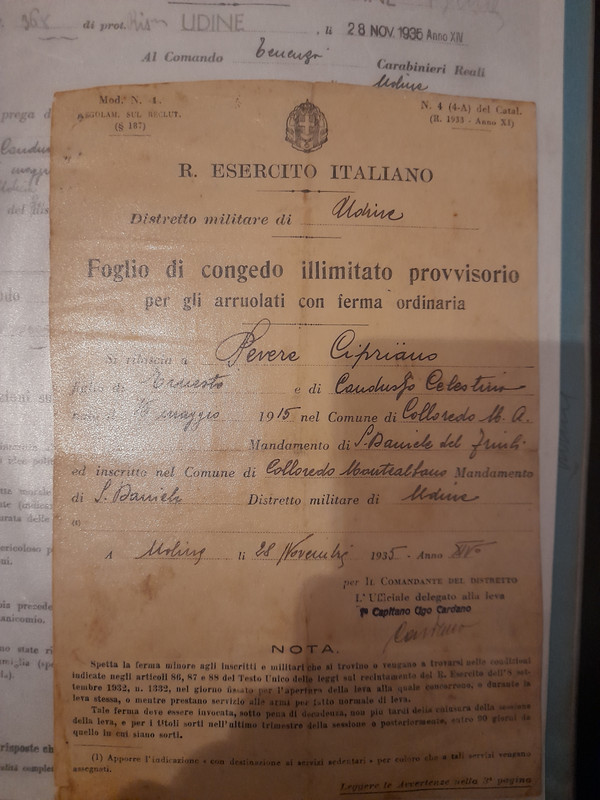 di prot. UDINE, li 28 NOV. 1935 Anno XIV
Al Comando Tenenza
Carabinieri Reali
Udine
Mod. N. 1.
REGOLAM. SUL RECLUT.
(§ 167)
N. 4 (4-A) del Catal.
(R. 1933 - Anno XI)
R. ESERCITO ITALIANO
Distretto militare di Udine
Foglio di congedo illimitato provvisorio
per gli arruolati con ferma ordinaria
Si rilascia a Pevere Cipriano
figlio di Ernesto e di Candusso Celestina
nato il 16 maggio 1915 nel Comune di Colloredo M. A.
Mandamento di S. Daniele del Friuli
ed inscritto nel Comune di Colloredo Montealbano Mandamento
di S. Daniele Distretto militare di Udine
(1)
A Udine li 28 Novembre 1935 - Anno XIVº
per IL COMANDANTE DEL DISTRETTO
L'Ufficiale delegato alla leva
1º Capitano Ugo Cardano
Cardano
NOTA.
Spetta la ferma minore agli inscritti e militari che si trovino o vengano a trovarsi nelle condizioni
indicate negli articoli 86, 87 e 88 del Testo Unico delle leggi sul reclutamento del R. Esercito dell'8 set-
tembre 1932, n. 1332, nel giorno fissato per l'apertura della leva alla quale concorrono, o durante la
leva stessa, o mentre prestano servizio alle armi per fatto normale di leva.
Tale ferma deve essere invocata, sotto pena di decadenza, non più tardi della chiusura della sessione
della leva, e per i titoli sorti nell'ultimo trimestre della sessione o posteriormente, entro 90 giorni da
quello in cui siano sorti.
(1) Apporre l'indicazione « con destinazione ai servizi sedentari » per coloro che a tali servizi vengano
assegnati.
Leggere le Avvertenze nella 3ª pagina